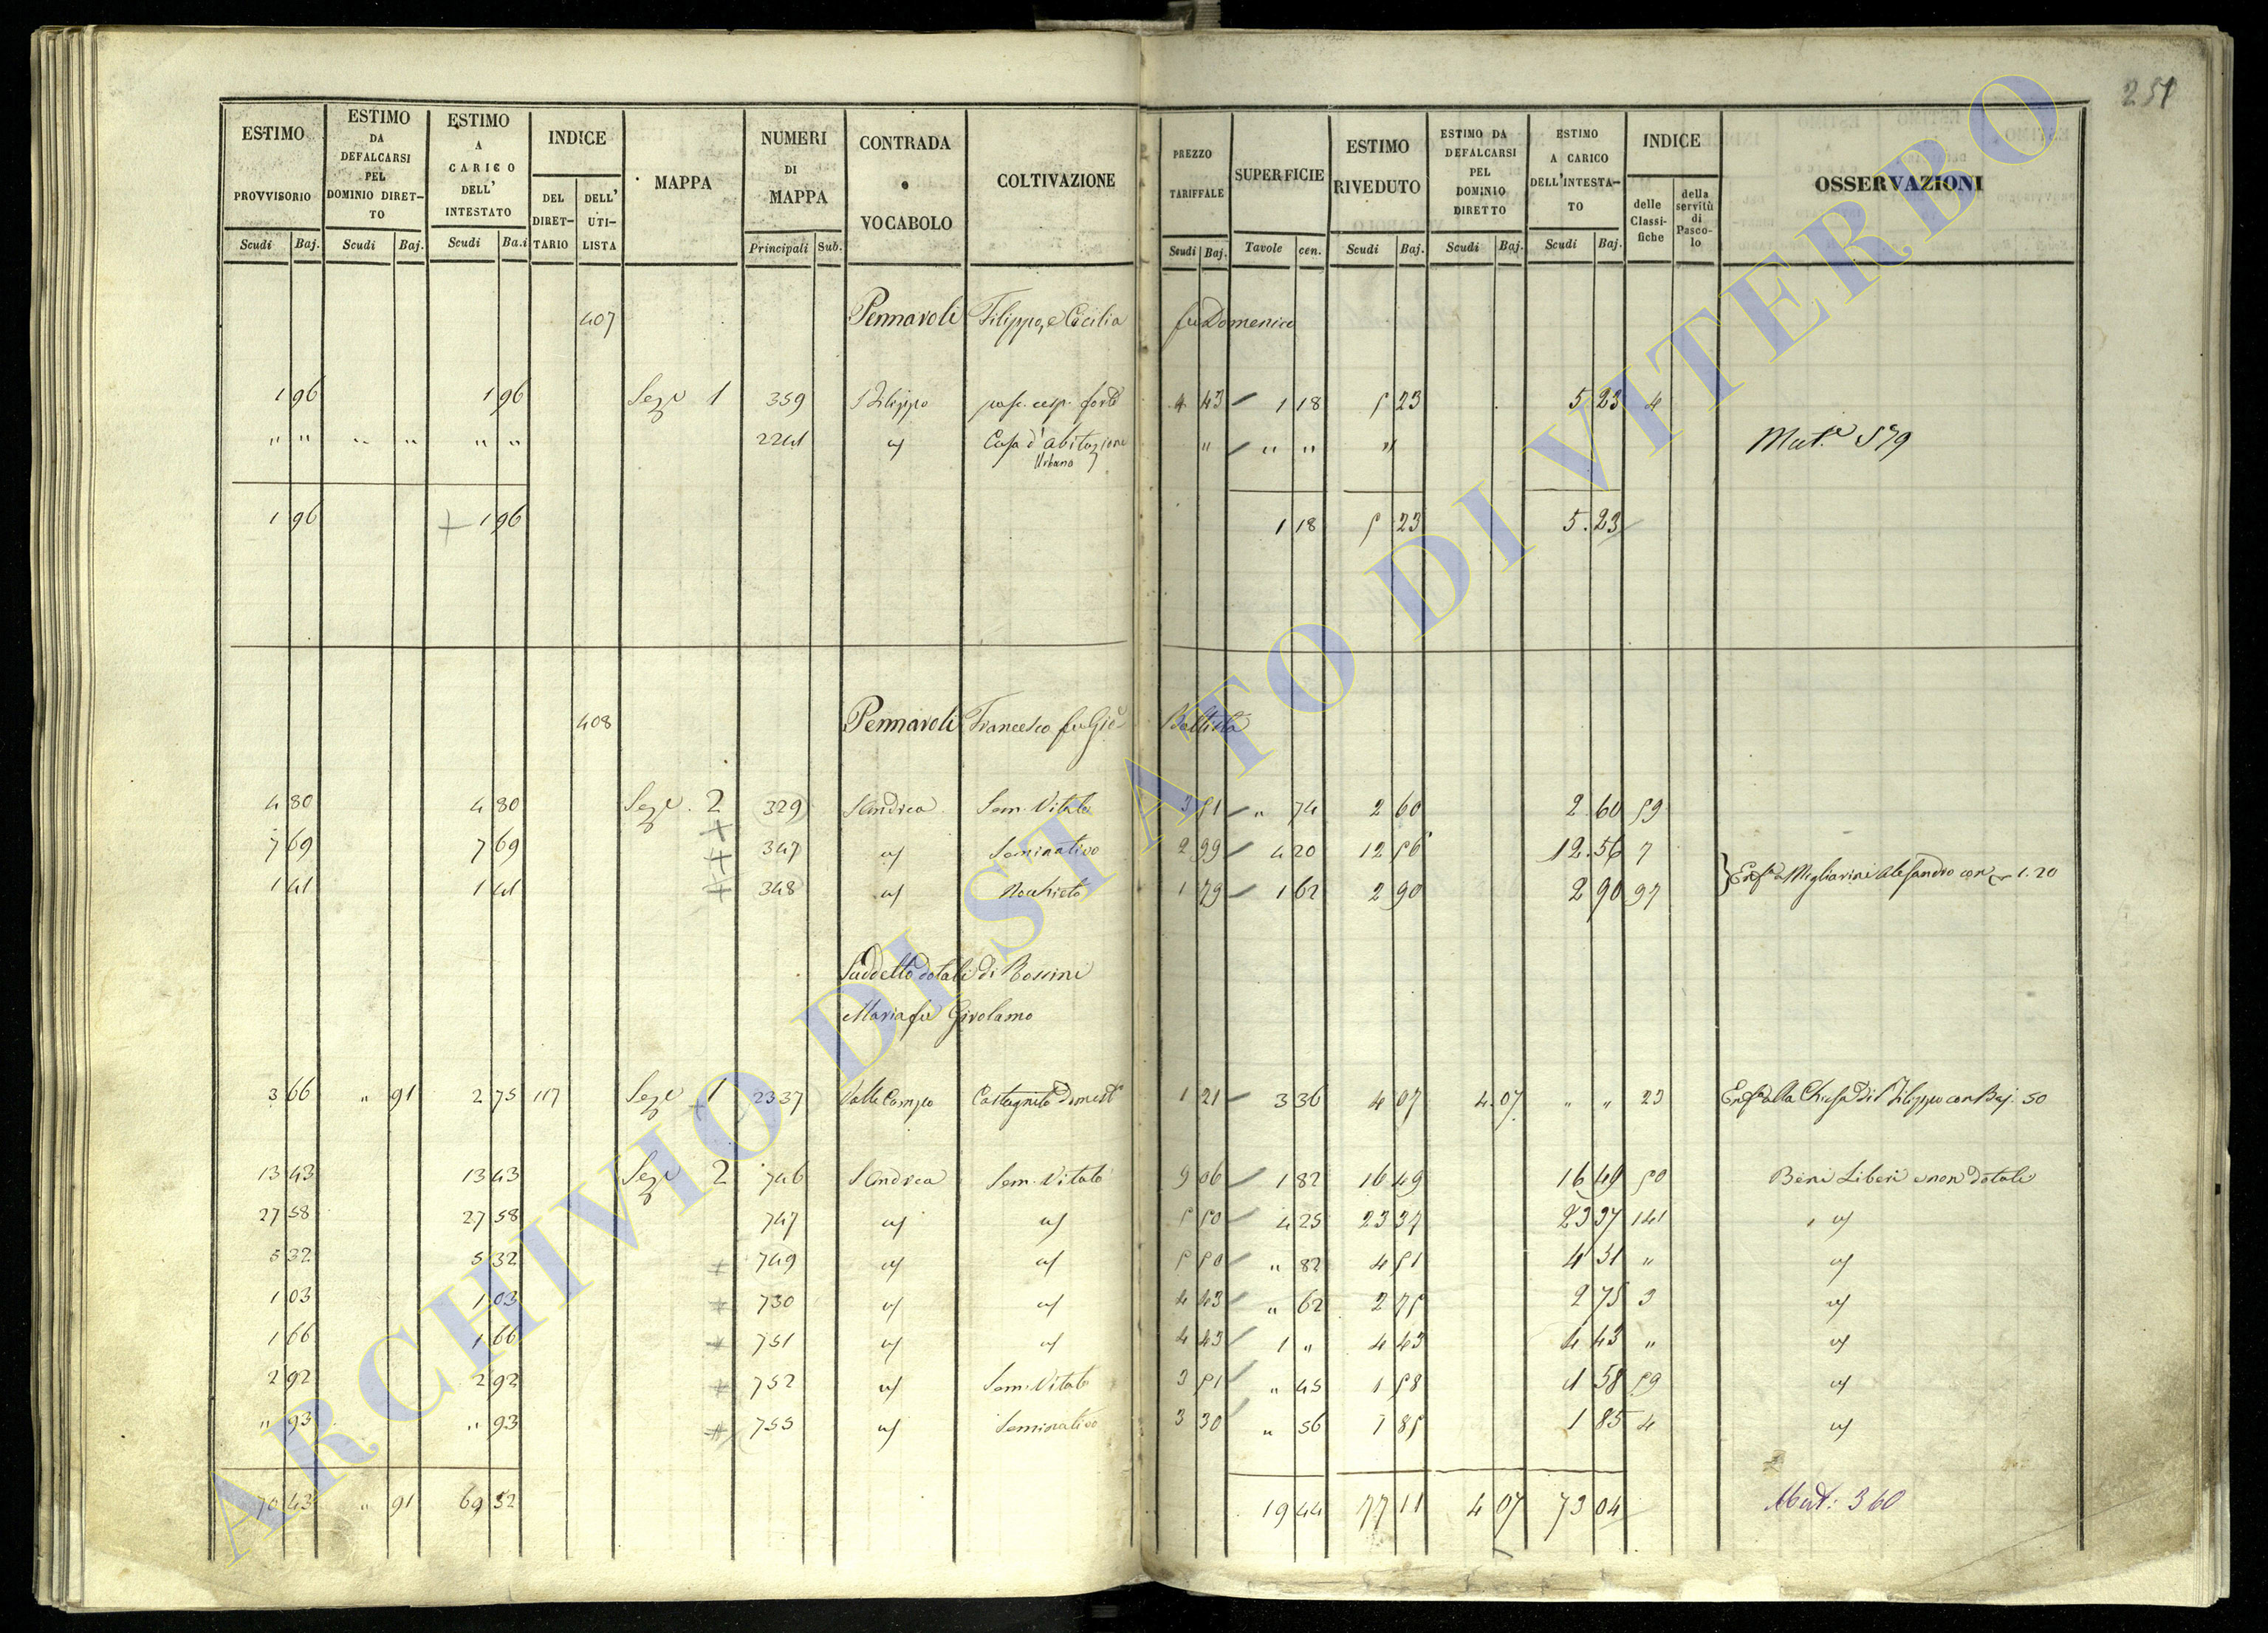 251
ESTIMO PROVVISORIO Scudi Baj. | ESTIMO DA DEFALCARSI PEL DOMINIO DIRETTO Scudi Baj. | ESTIMO A CARICO DELL' INTESTATO Scudi Ba.i | INDICE DEL DIRETTARIO DELL' UTILISTA | MAPPA | NUMERI DI MAPPA Principali Sub. | CONTRADA o VOCABOLO | COLTIVAZIONE | PREZZO TARIFFALE Scudi Baj. | SUPERFICIE Tavole cen. | ESTIMO RIVEDUTO Scudi Baj. | ESTIMO DA DEFALCARSI PEL DOMINIO DIRETTO Scudi Baj. | ESTIMO A CARICO DELL'INTESTATO Scudi Baj. | INDICE delle Classifiche della servitù di Pascolo | OSSERVAZIONI
407 Pennaroli Filippo, e Cecilia fu Domenico
1 96 1 96 Sez.e 1 359 S Filippo pasc. cesp. forte 4 43 1 18 5 23 5 23 4
" " " " " " 2241 " Casa d'abitazione Urbano " " " " Mat.e 579
1 96 1 96 1 18 5 23 5.23
408 Pennaroli Francesco fu Gio Battista
4 80 4 80 Sez.e 2 329 S Andrea Sem. Vitato 3 51 " 74 2 60 2 60 59
7 69 7 69 347 " Seminativo 2 99 4 20 12 56 12.56 7
1 41 1 41 348 " Nocchieto 1 79 1 62 2 90 2 90 97 Enf.a Migliarini Alesandro con 1.20
Suddetto dotali di Rossini
Maria fu Girolamo
3 66 " 91 2 75 117 Sez.e 1 2337 Valle Campo Castagneto Domest. 1 21 3 36 4 07 4.07 " " 23 Enf. alla Chiesa di S Filippo con Baj. 50
13 43 13 43 Sez.e 2 746 S Andrea Sem. Vitato 9 06 1 82 16 49 16 49 50 Beni Liberi e non Dotali
27 58 27 58 747 " " 5 50 4 25 23 37 23 37 141 "
5 32 5 32 749 " " 5 50 " 82 4 51 4 51 " "
1 03 1 03 750 " " 4 43 " 62 2 75 2 75 3 "
1 66 1 66 751 " " 4 43 1 " 4 43 4 43 " "
2 92 2 92 752 " Sem. Vitato 3 51 " 45 1 58 1 58 59 "
" 93 " 93 755 " Seminativo 3 30 " 56 1 85 1 85 4 "
70 43 " 91 69 52 19 44 77 11 4 07 73 04 Mat: 360
ARCHIVIO DI STATO DI VITERBO